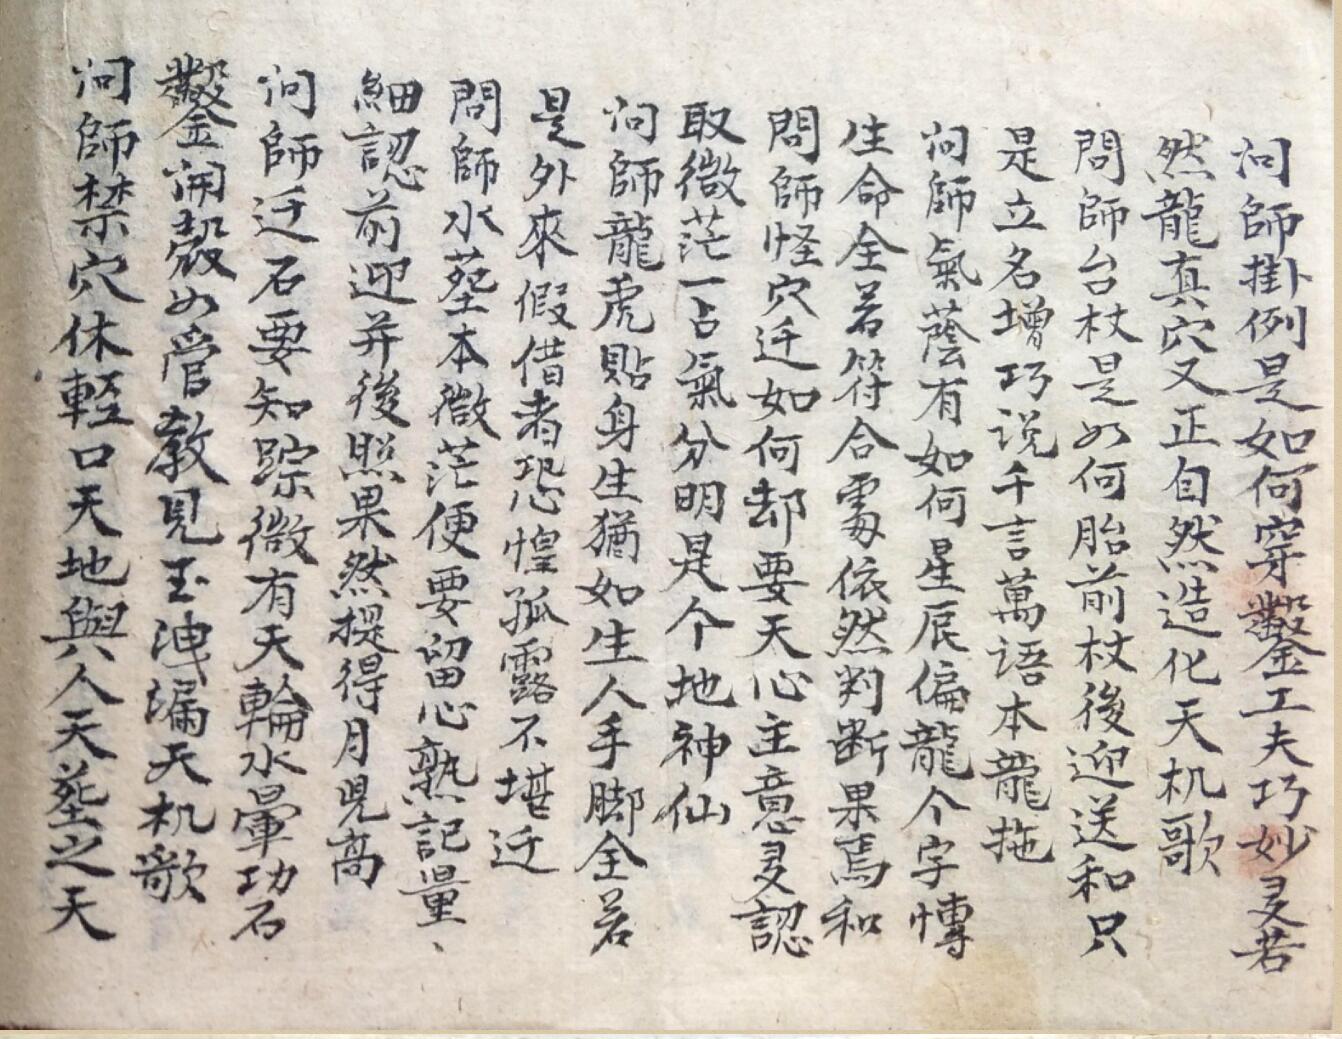 问師掛例是如何穿鑿工夫巧妙㕛若
然龍真穴又正自然造化天机歌
問師台杖是如何胎前杖後迎送和只
是立名增巧说千言萬語本龍拖
问師氣蔭有如何星辰偏龍个字慱
生命全若符合䨇依然判断果焉和
問師怪穴迁如何却要天心主意㕛認
取微茫一占氣分明是个地神仙
问師龍虎貼身生猶如生人手脚全若
是外來假借者恐惶孤露不堪迁
問師水塟本微茫便要留心熟記量、
細認前迎并後照果然提得月児高
问師迁石要知踪微有天輪水暈功石
鑿開殼如管教見玉洩漏天机歌
问師禁穴休輕口天地與人天塟之天